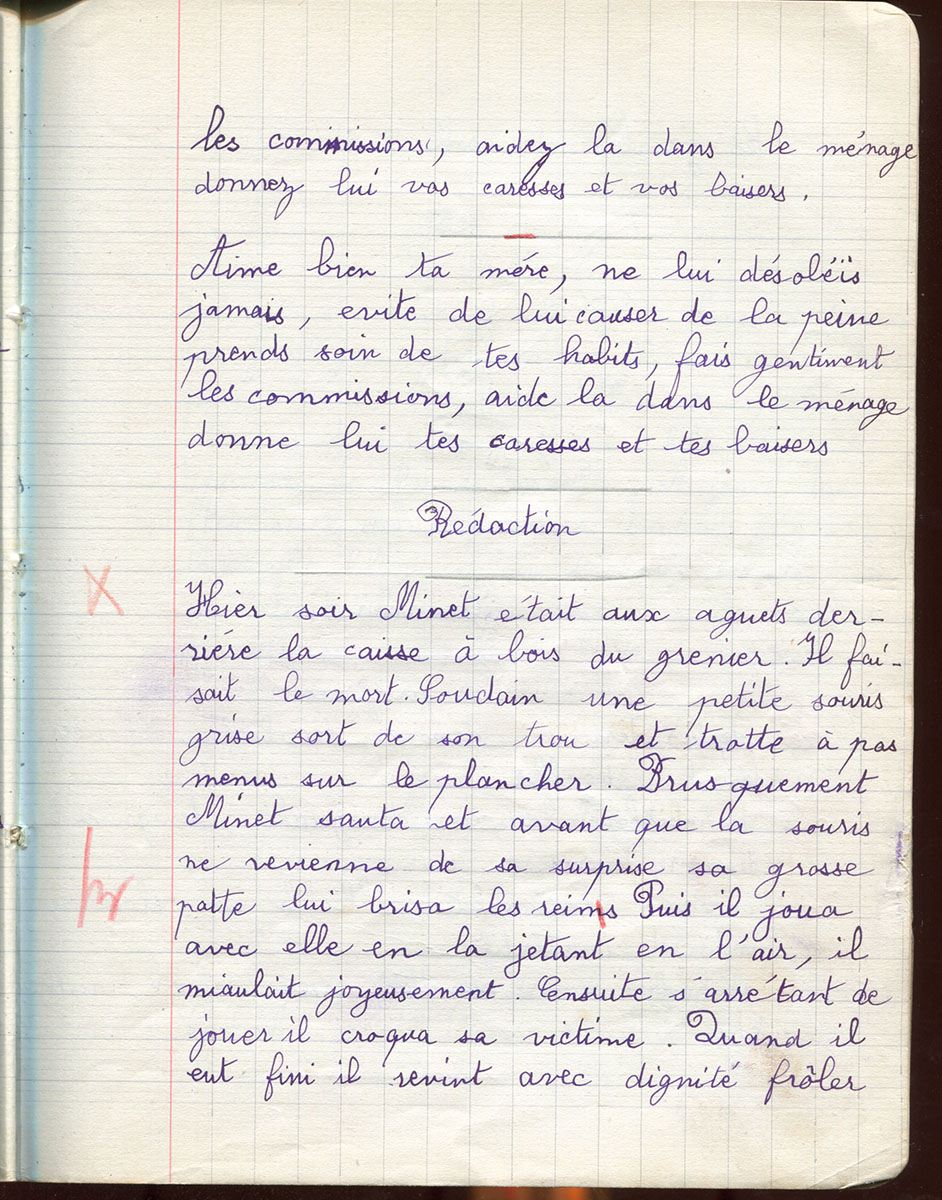 les commissions, aidez la dans le ménage
donnez lui vos caresses et vos baisers.
Aime bien ta mére, ne lui désoléïs
jamais, evite de lui causer de la peine
prends soin de tes habits, fais gentiment
les commissions, aide la dans le ménage
donne lui tes caresses et tes baisers
Rédaction
Hier soir Minet était aux aguets der-
riére la caisse à bois du grenier. Il fai-
sait le mort. Soudain une petite souris
grise sort de son trou et trotte à pas
menus sur le plancher. Brusquement
Minet sauta et avant que la souris
ne revienne de sa surprise sa grosse
patte lui brisa les reims Puis il joua
avec elle en la jetant en l'air, il
miaulait joyeusement. Ensuite s'arrétant de
jouer il croqua sa victime. Quand il
eut fini il revint avec dignité frôler